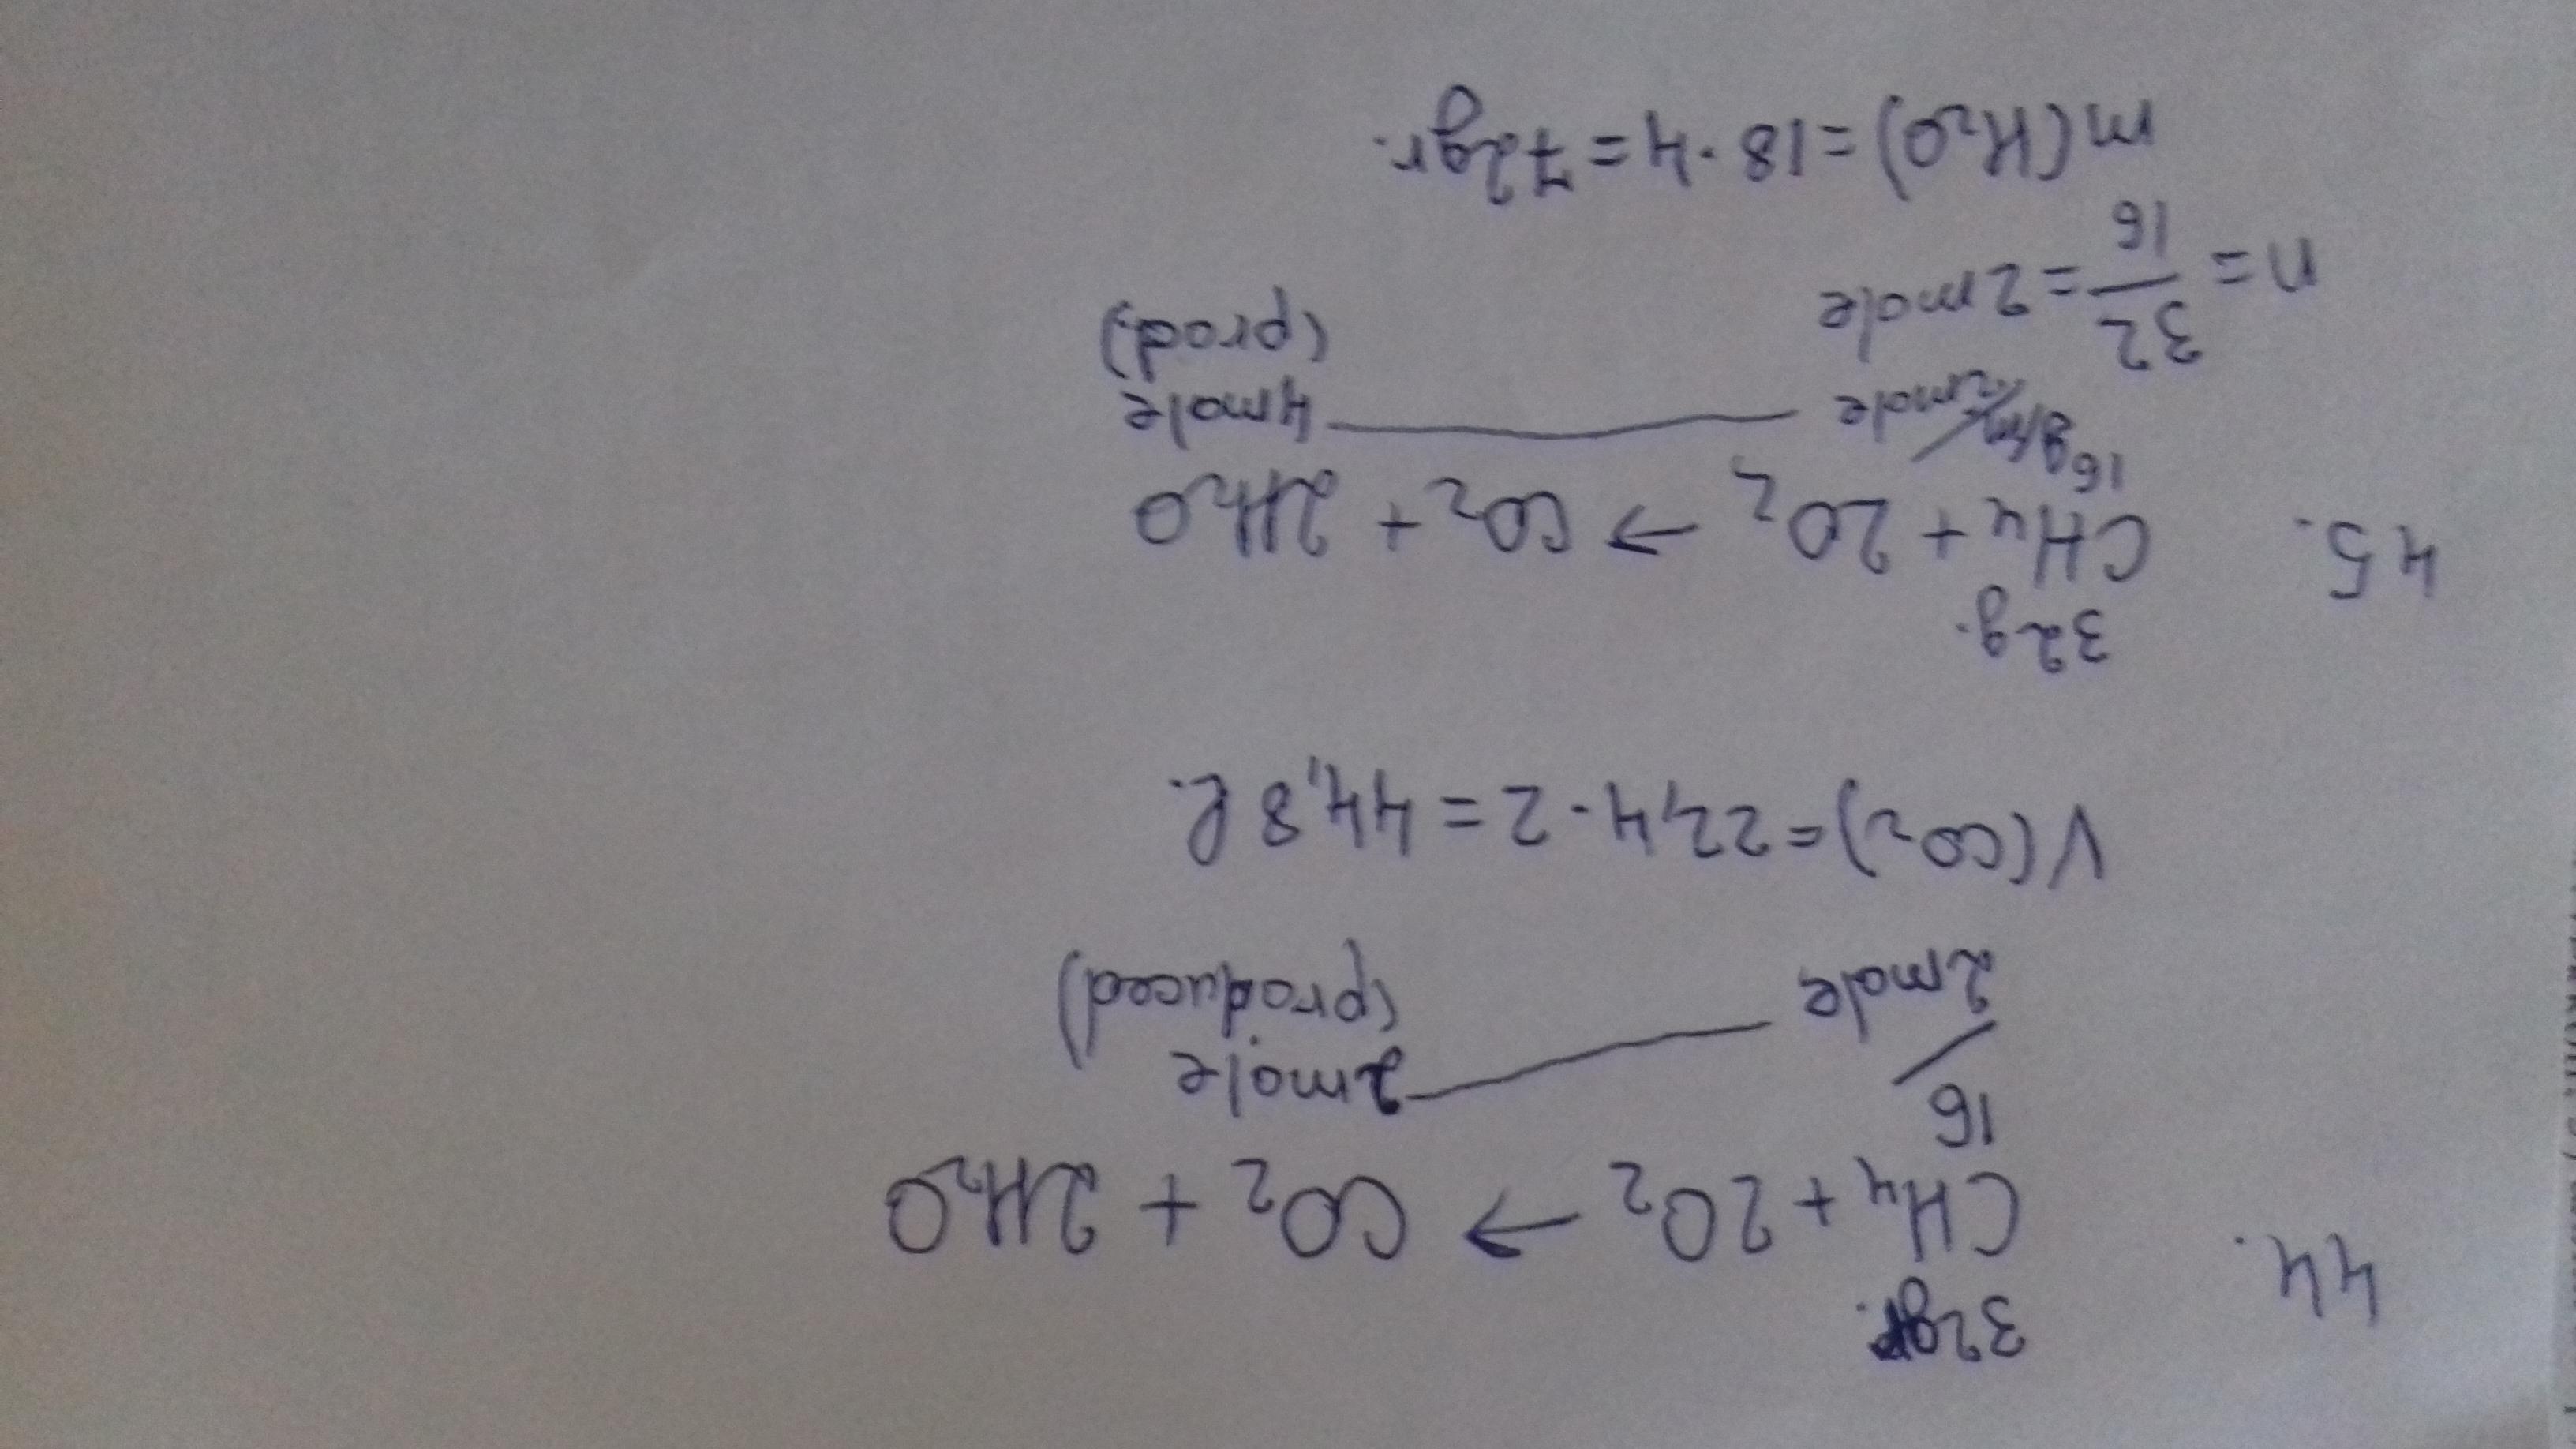 44.
32gr.
CH₄ + 2O₂ → CO₂ + 2H₂O
16
2mole
2mole
(produced)
V(CO₂) = 22,4 · 2 = 44,8 l.
45.
32g.
CH₄ + 2O₂ → CO₂ + 2H₂O
16g/m
2mole
4mole
(prod.)
n = 32/16 = 2mole
m(H₂O) = 18 · 4 = 72gr.